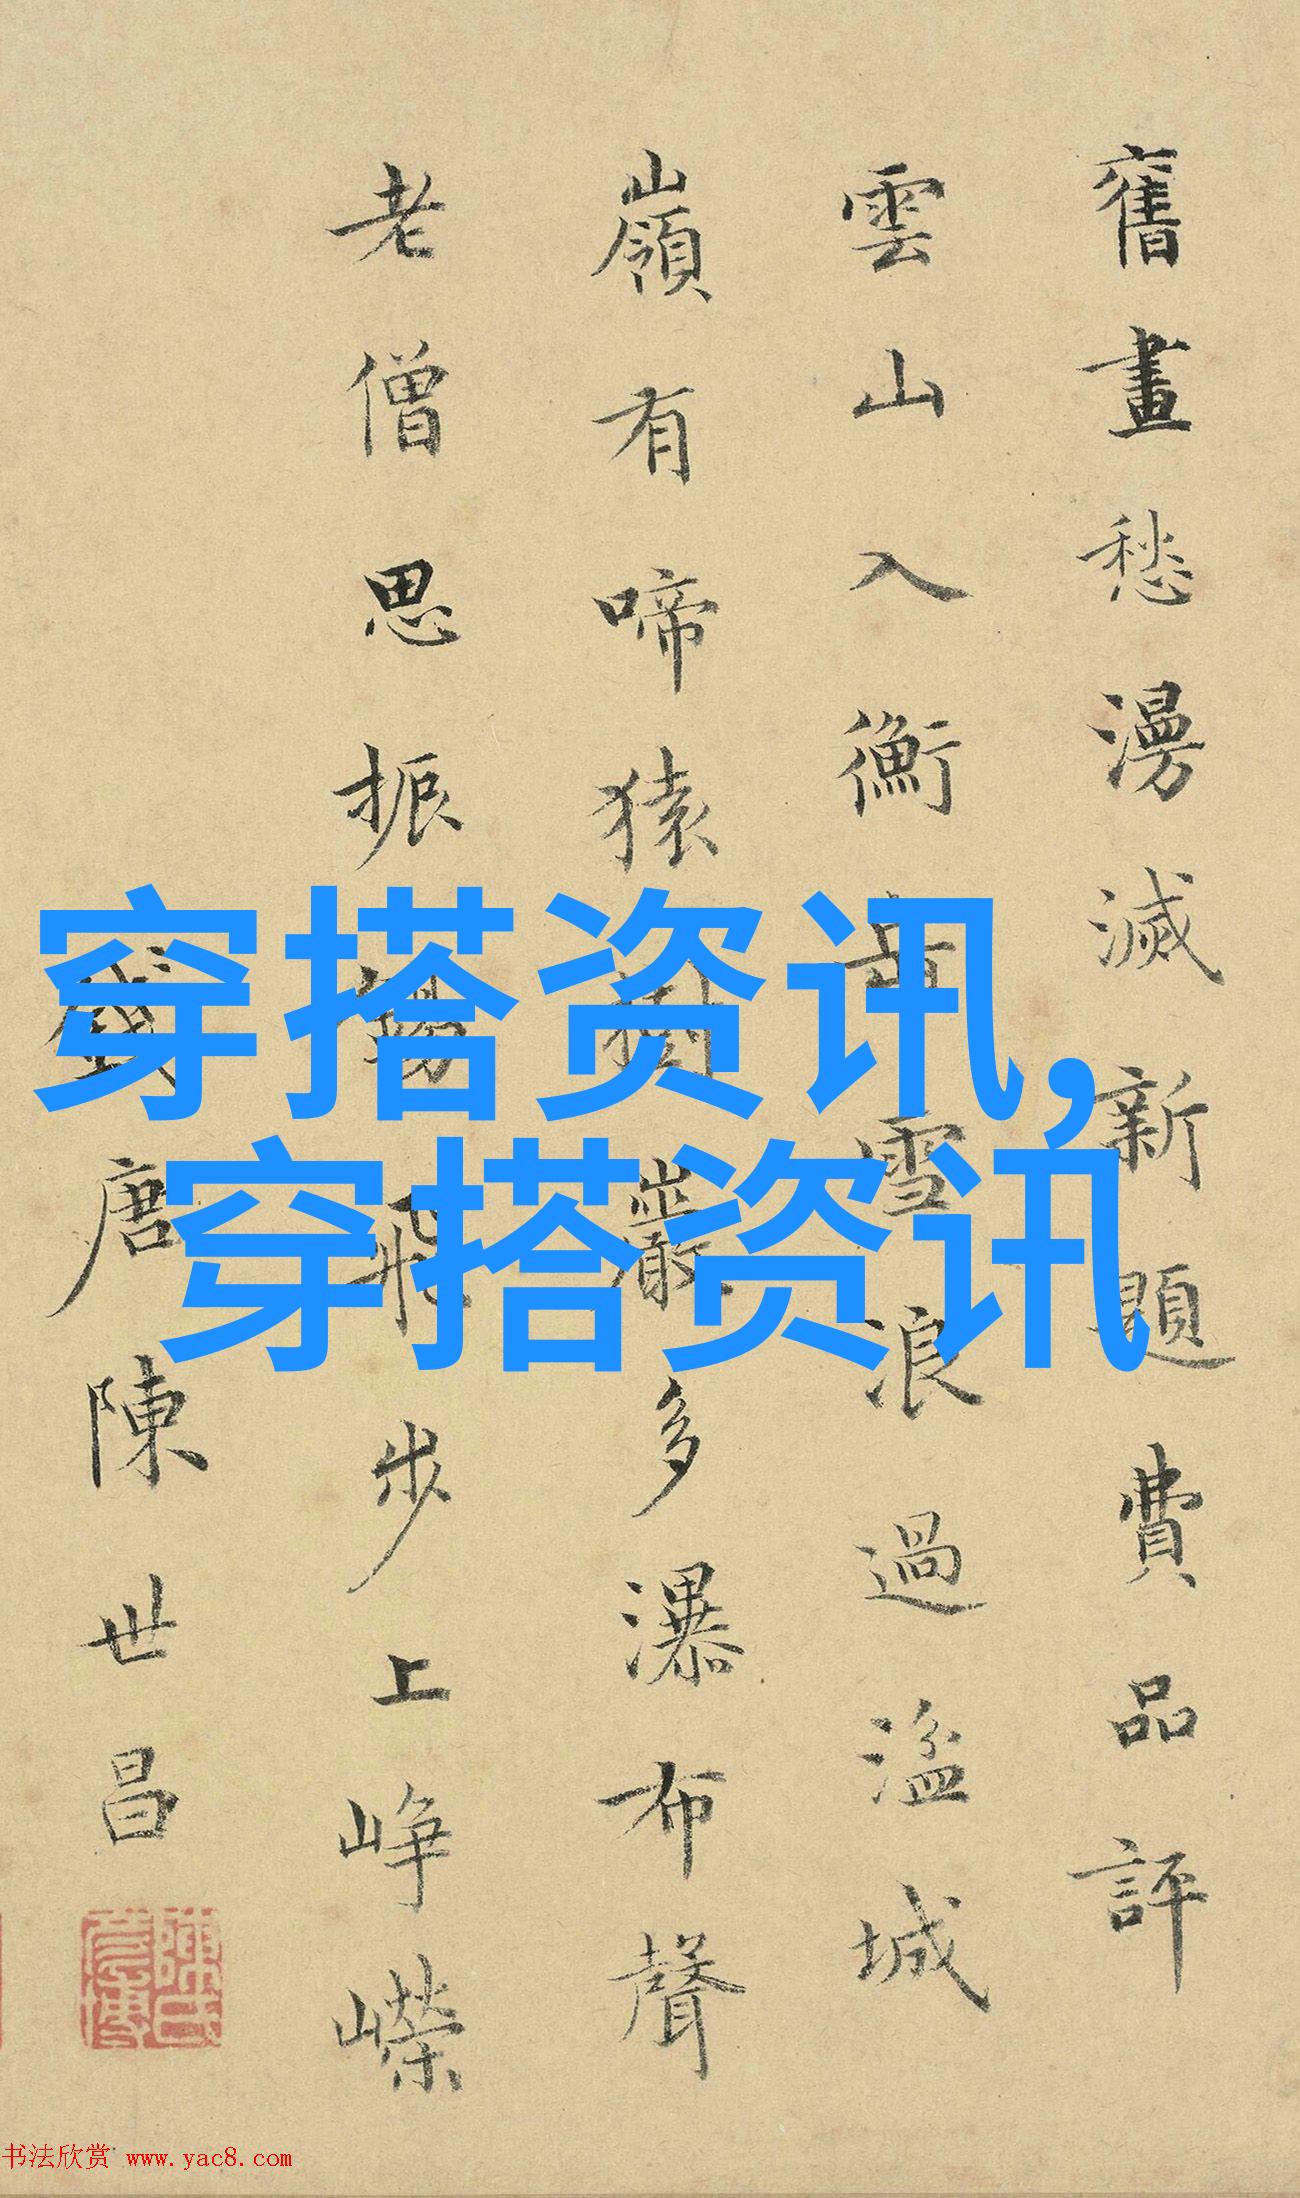 舊畫愁漫滅新題費品評
雲山入衡岳雪浪過湓城
嶺有啼猿樹巖多瀑布聲
老僧思振錫飛步上崢嶸
錢唐陳世昌
穿搭资讯,
穿搭资讯
书法欣赏 www.yac8.com